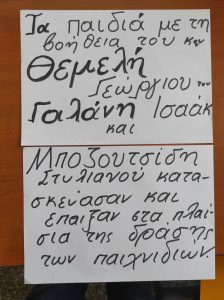 Τα παιδιά με τη
βοήθεια του κου
Θεμελή
Γεώργιου του
Γαλάνη Ισαάκ
και
Μποζουτσίδη
Στυλιανού κατα-
σκεύασαν και
έπαιξαν στα πλαί-
σια της δράσης
των παιχνιδιών.